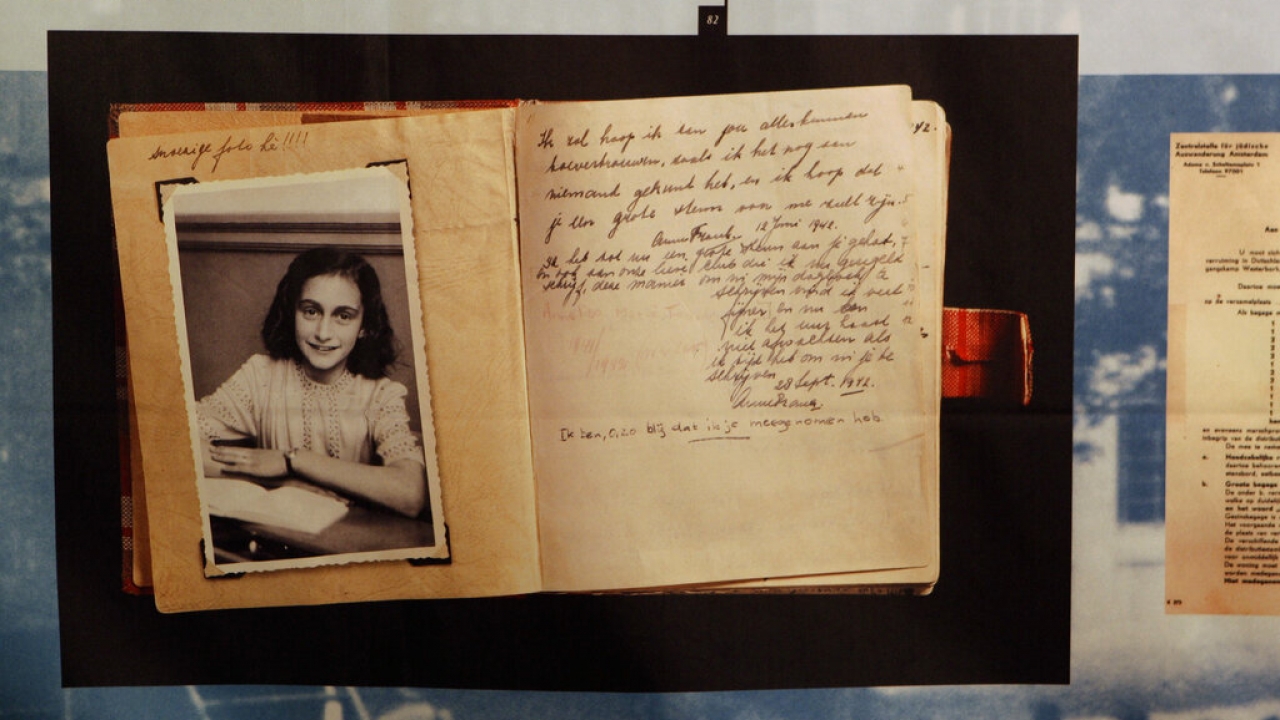 82
snoezige foto hè!!!!
Ik zal hoop ik aan jou alles kunnen
toevertrouwen, zoals ik het nog aan
niemand gekund heb, en ik hoop dat
je een grote steun voor me zult zijn.
Anne Frank. 12 Juni 1942.
Ik heb tot nu een grote steun aan je gehad,
en ook aan onze lieve club die ik nu geregeld
schrijf, deze manier om in mijn dagboek te
schrijven vind ik veel
fijner en nu kan
ik het uur haast
niet afwachten als
ik tijd heb om in je te
schrijven.
28 Sept. 1942.
Anne Frank.
Ik ben, o, zo blij dat ik je meegenomen heb.
42.
Zentralstelle für jüdische
Auswanderung Amsterdam
Adama v. Scheltemaplein 1
Telefoon 97001
Aan
U moet zich
verruiming in Duitschla
gangskamp Westerbork
Daartoe moe
op de verzamelplaats
Als bagage m
en eveneens
inbegrip van de distribut
De mee te
a.
daartoe behooren
b. Groote bagage
De onder b.
welke op duidelijk
en het woord
Het voorgaande
de plaats van
De verschillende
de distributie
voor onmiddellijk
De woning moet
worden
Niet medegenomen